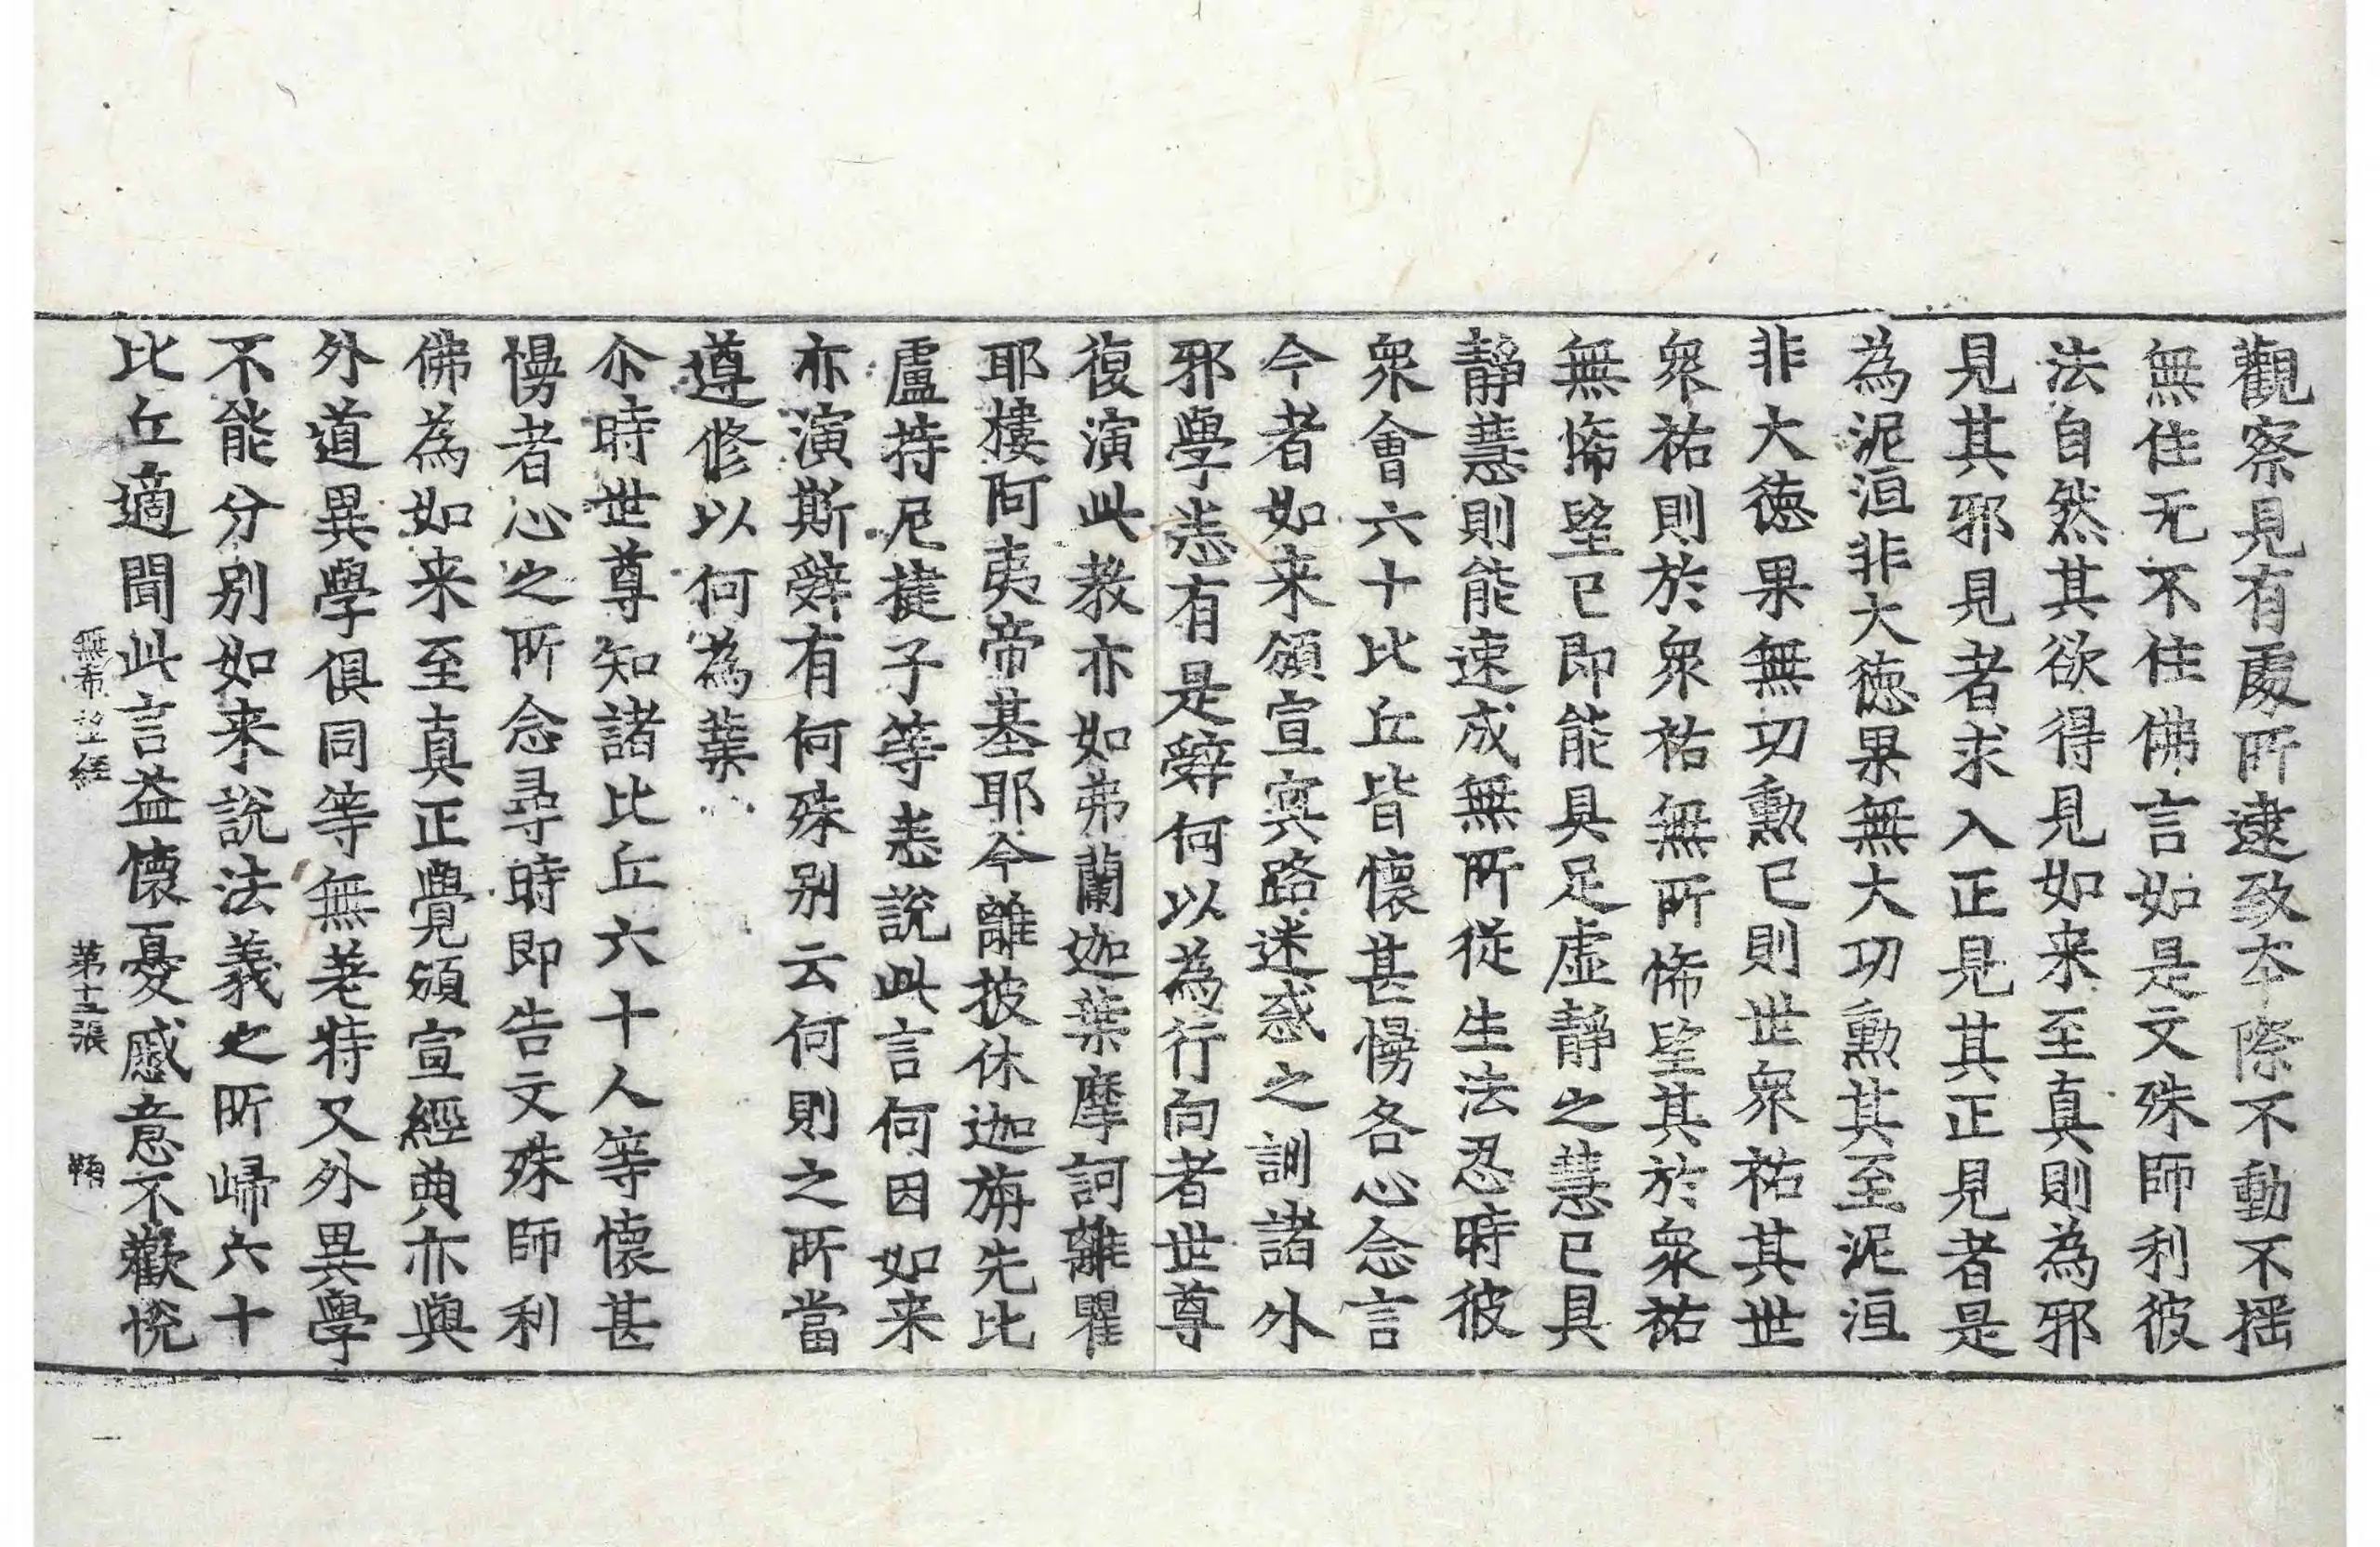 觀察見有處所逮致夲際不動不摇
無住无不住佛言如是文殊師利彼
法自然其欲得見如来至真則為邪
見其邪見者求入正見其正見者是
為泥洹非大徳果無大功勲其至泥洹
非大徳果無功勲已則世衆祐其世
衆祐則於衆祐無所悕望其於衆祐
無悕望已即能具足虚静之慧已具
靜慧則能速成無所從生法忍時彼
衆會六十比丘皆懷甚慢各心念言
今者如来頒宣冥路迷惑之訓諸外
邪學悉有是辭何以為行向者世尊
復演此教亦如弗蘭迦葉摩訶離瞿
耶樓阿夷帝基耶今離披休迦旃先比
盧持尼揵子等悉說此言何因如来
亦演斯辭有何殊别云何則之所當
遵修以何為業
尒時世尊知諸比丘六十人等懷甚
慢者心之所念尋時即告文殊師利
佛為如来至真正覺頒宣經典亦與
外道異學俱同等無差特又外異學
不能分别如来說法義之所歸六十
比丘適聞此言益懷憂慼意不歡悅
無希望經 第十五張